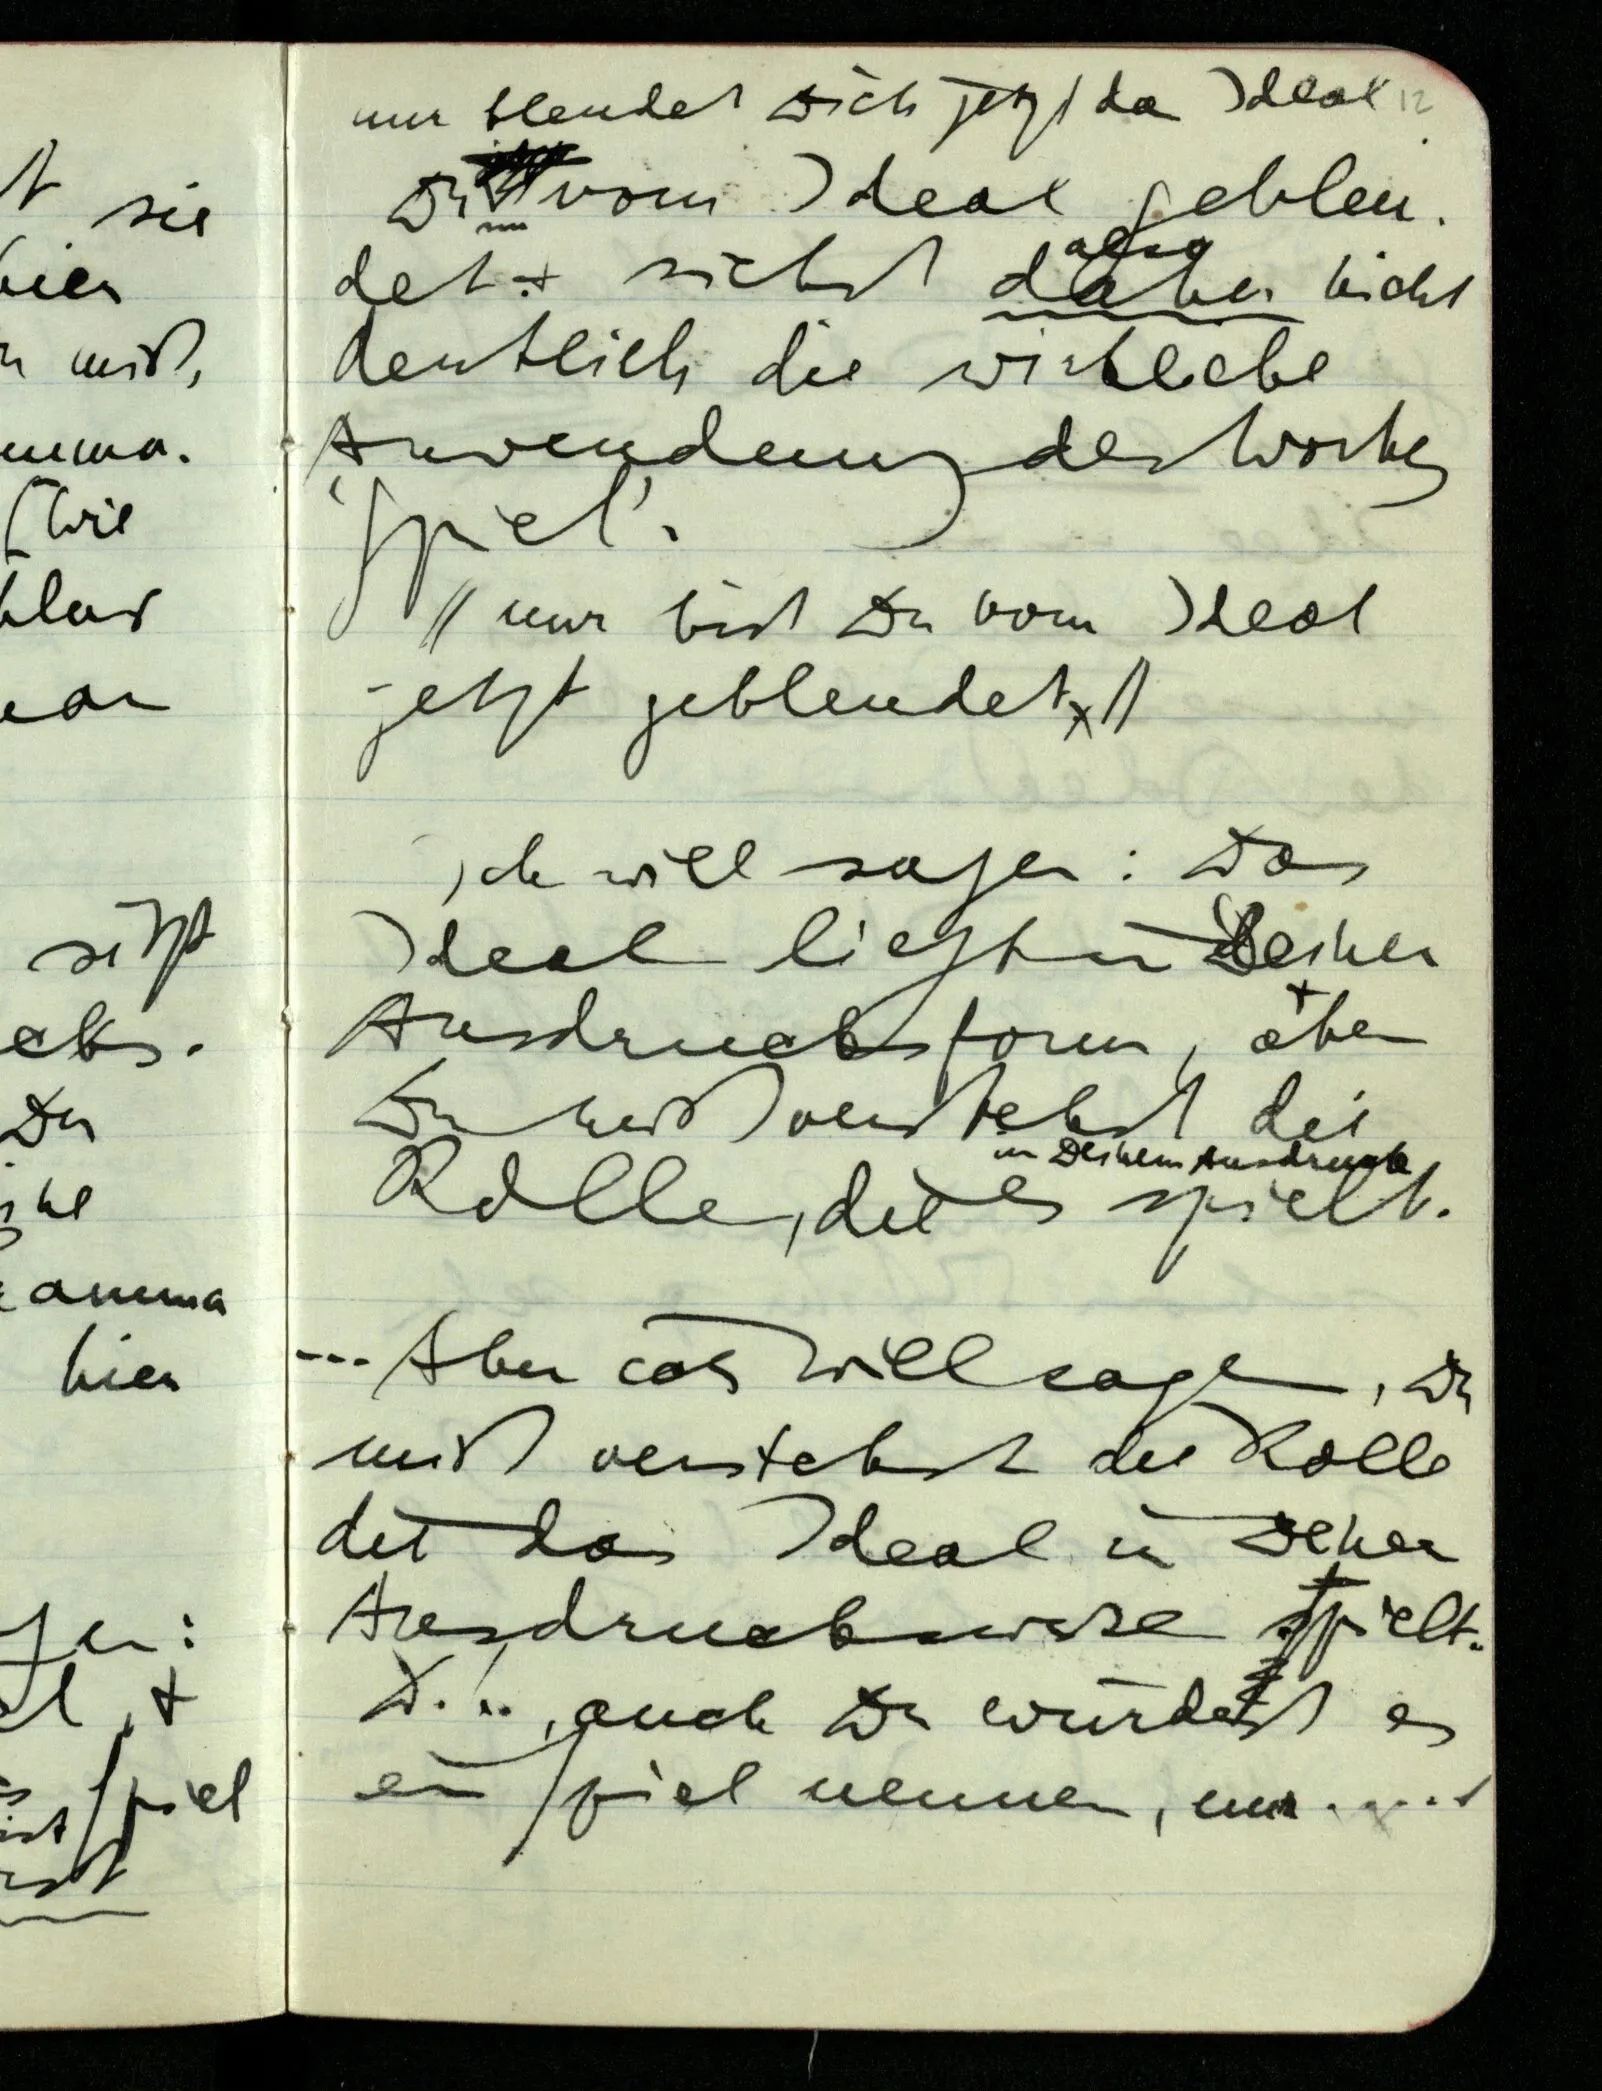 t sie
hier
mißt,
(Wie
klar
sitzt
Du
hier
Spiel
ist
nur blendet Dich jetzt das Ideal 12
Du nun vom Ideal geblen-
det + siehst daher also nicht
deutlich die wirkliche
Anwendung des Wortes
'Spiel'.
// nur bist Du vom Ideal
jetzt geblendet //
Ich will sagen: Das
Ideal liegt in Deiner
Ausdrucksform, aber
Du mißverstehst die
in Deinem Ausdruck
Rolle, die es spielt.
--- Aber ich will sagen, Du
mißverstehst die Rolle
die das Ideal in Deiner
Ausdrucksweise spielt.
D.i., auch Du würdest es
ein Spiel nennen, nur ....